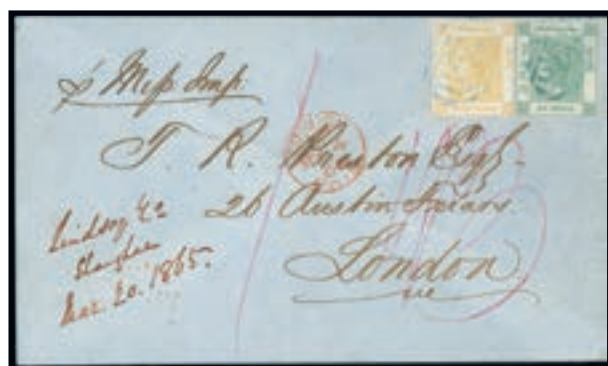 p Mess Imp
T. R. Preston Esqr.
26 Austin Friars.
London
Lindsay & Co
Shanghae
Mar 20. 1865.